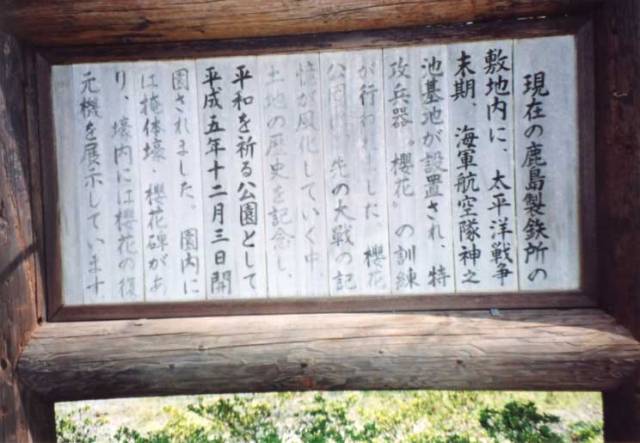 現在の鹿島製鉄所の
敷地内に、太平洋戦争
末期、海軍航空隊神之
池基地が設置され、特
攻兵器〝櫻花〟の訓練
が行われました 櫻花
公園は、先の大戦の記
憶が風化していく中、
土地の歴史を記念し、
平和を祈る公園として
平成五年十二月三日開
園されました。園内に
は掩体壕・櫻花碑があ
り、壕内には櫻花の復
元機を展示しています